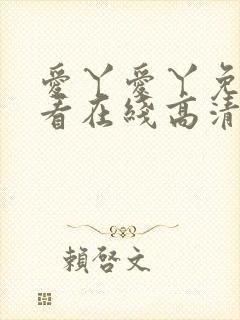 愛丫愛丫免
看在綫高清
賴啓文